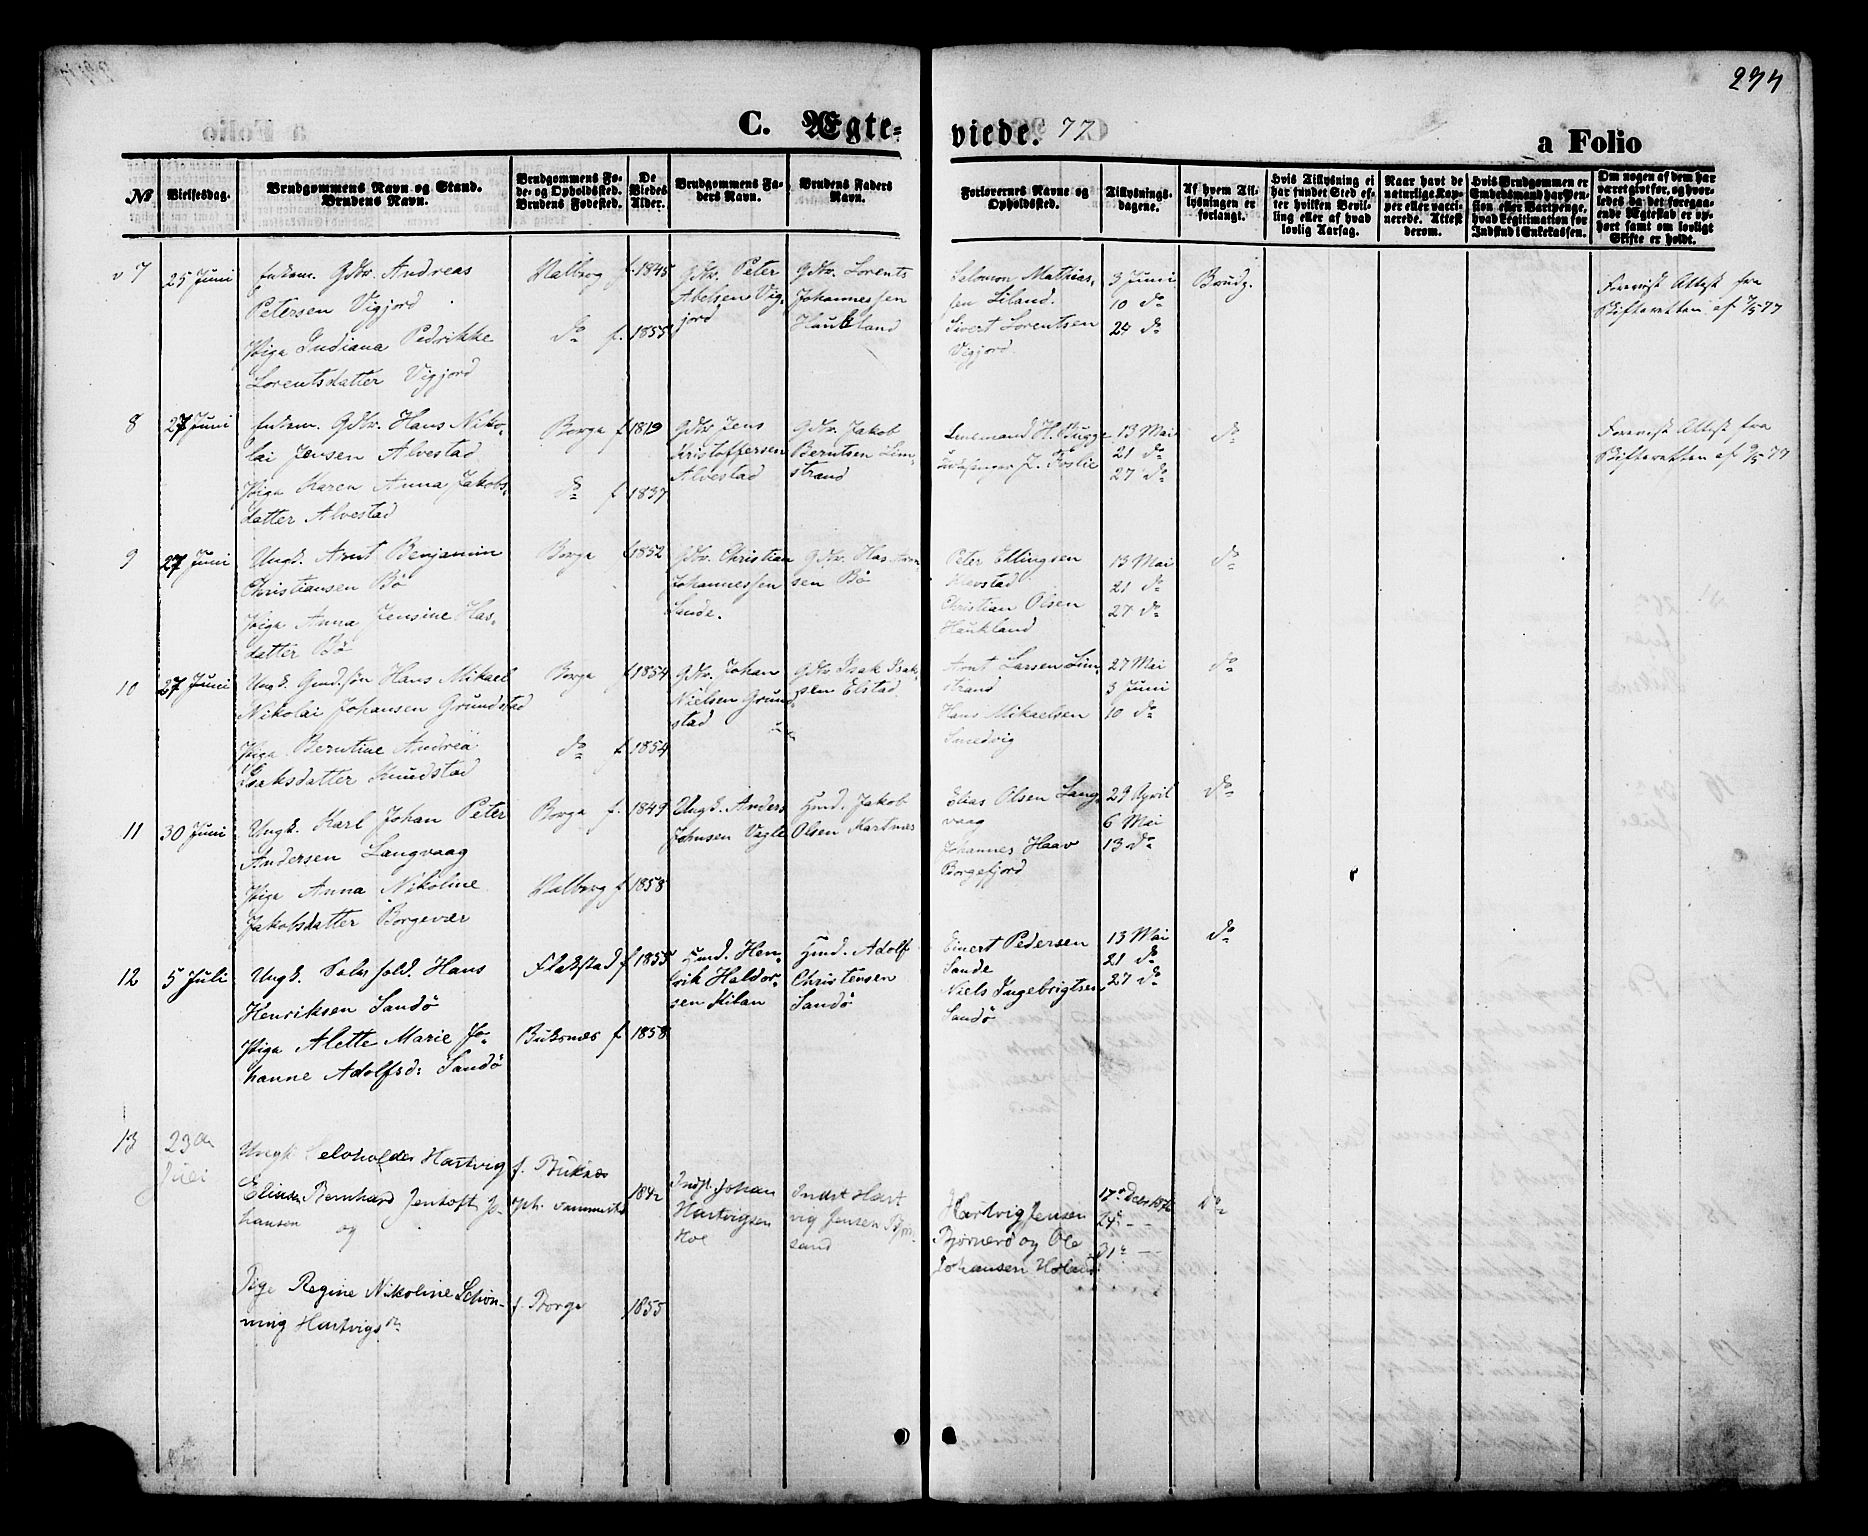 234
C. Ægte-
viede. 77
a Folio
No
Vielsesdag.
Brudgommens Navn og Stand.
Brudens Navn.
Brudgommens Fø-
de- og Opholdssted.
Brudens Fødested.
De
Viedes
Alder.
Brudgommens Fa-
ders Navn.
Brudens Faders
Navn.
Forlovernes Navne og
Opholdssted.
Tillysnings-
dagene.
Af hvem Til-
lysningen er
forlangt.
Hvis Tillysning ei
har fundet Sted ef-
ter hvilken Bevil-
ling eller af hvad
lovlig Aarsag.
Naar havt de
naturlige Kop-
per eller vacci-
nerede. Attest
derom.
Hvis Brudgommen er
Enkedsmand har Pen-
sion eller Vartpenge,
hvad Legitimation for
Indskud i Enkekassen.
Om nogen af dem har
været givt før, og hvor-
ledes da det foregaa-
ende Ægteskab er op-
hørt samt om lovligt
Skifte er holdt.
7
25 Juni
Enkem. Gdbr. Andreas
Petersen Vigjord
Pige Indiana Pedrikke
Lorentsdatter Vigjord
Valberg f. 1845
do f. 1855
Gdbr. Peter
Abelsen Vig-
jord
Gdbr. Lorents
Johannessen
Haukland
Salomon Mathias-
sen Liland.
Sivert Lorentsen
Vigjord.
3 Juni
10 do
24 do
Brudg.
Forevist Attest fra
Skifteretten af
8
27 Juni
Enkem. Gdbr. Hans Niko-
lai Jensen Alvestad
Pige Karen Anna Jakobs-
datter Alvestad
Borge f 1819
do f 1837
Gdbr Jens
Kristoffersen
Alvestad
Gdbr. Jakob
Berntsen Lim-
strand
Lensmand H. Bugge
J. Foslie
13 Mai
21 do
27 do
do
Forevist Attest fra
Skifteretten af
9
27 Juni
Ungk. Arnt Benjamin
Christiansen Bø
Pige Anna Jensine Has-
datter Bø
Borge f 1852
Gdbr. Christian
Johannessen
Sande.
Gdbr. Has
sen Bø
Peter Ellingsen
Christian Olsen
Haukland
13 Mai
21 do
27 do
do
10
27 Juni
Ungk. Grdsøn Hans Mikael
Nikolai Johansen Grundstad
Pige Berntine Andrea
Isaksdatter Knudstad
Borge f 1854
do f 1854
Gdbr. Johan
Nielsen Grund-
stad
Gdbr Isak Isak-
sen Elstad
Arnt Larsen Lim-
strand
Hans Mikaelsen
Smedvig
27 Mai
3 Juni
10 do
do
11
30 Juni
Ungk. Karl Johan Peter
Andersen Langvaag
Pige Anna Nikoline
Jakobsdatter Borgevær
Borge f. 1849
Valberg f 1858
Ungk. Anders
Johnsen Vagle
Hmd. Jakob
Olsen Kartnes
Elias Olsen Lang-
vaag
Johannes Haav
Borgefjord
29 April
6 Mai
13 do
do
12
5 Juli
Ungk. Hans
Henriksen Sandø
Pige Alette Marie Jo-
hanne Adolfsd: Sandø
Flakstad f 1855
Buksnes f 1858
Hmd. Hen-
rik Haldor-
sen Kilan
Hmd. Adolf
Christensen
Sandø
Einert Pedersen
Sande
Niels Ingebrigtsen
Sandø
13 Mai
21 do
27 do
do
13
23de
Juli
Ungk Selvholder Hartvig
Bernhard Jentoft Jo-
hansen
og
Pige Regine Nikoline Schøn-
ning Hartvigsdr
f. Buksnes
oph. sammesteds
f. Borge
1842
1855
Indst Johan
Hartvigsen
Hol
Indst Hart
vig Jensen
Hartvig Jensen
og Ole
Johansen
17 Decbr 1876
24 —
31 —
do